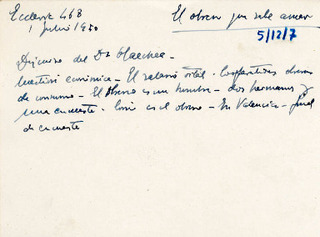 Ecclesia 468
1 Julio 1950
El obrero que sabe amar
5/12/7
Discurso del Dr
Cuestión económica - El salario vital - Cooperativas obreras
de consumo - El obrero es un hombre - dos hermanos y
una encuesta - Como es el obrero - En Valencia - final
de encuesta